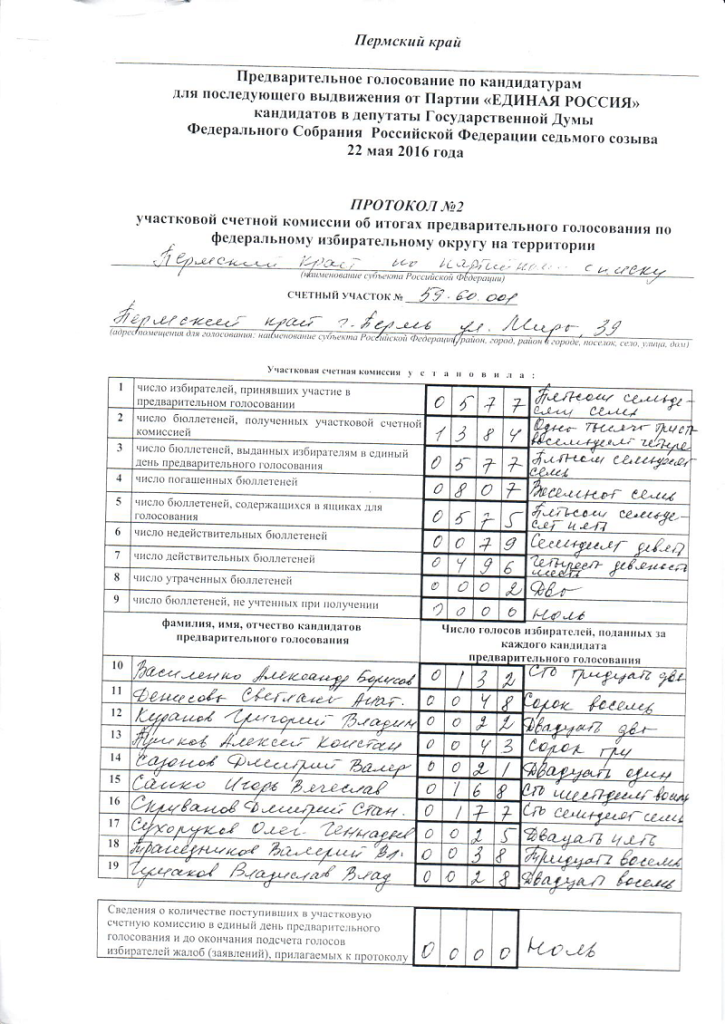 Пермский край
Предварительное голосование по кандидатурам
для последующего выдвижения от Партии «ЕДИНАЯ РОССИЯ»
кандидатов в депутаты Государственной Думы
Федерального Собрания Российской Федерации седьмого созыва
22 мая 2016 года
ПРОТОКОЛ №2
участковой счетной комиссии об итогах предварительного голосования по
федеральному избирательному округу на территории
Пермский край по партийному списку
(наименование субъекта Российской Федерации)
СЧЕТНЫЙ УЧАСТОК № 59.60.001
Пермский край г. Пермь ул. Мира, 39
(адрес помещения для голосования: наименование субъекта Российской Федерации, район, город, район в городе, поселок, село, улица, дом)
Участковая счетная комиссия установила:
1 число избирателей, принявших участие в 0 5 7 7 Пятьсот семьде-
предварительном голосовании сят семь
2 число бюллетеней, полученных участковой счетной 1 3 8 4 Одна тысяча триста
комиссией восемьдесят четыре
3 число бюллетеней, выданных избирателям в единый 0 5 7 7 Пятьсот семьдесят
день предварительного голосования семь
4 число погашенных бюллетеней 0 8 0 7 Восемьсот семь
5 число бюллетеней, содержащихся в ящиках для 0 5 7 5 Пятьсот семьде-
голосования сят пять
6 число недействительных бюллетеней 0 0 7 9 Семьдесят девять
7 число действительных бюллетеней 0 4 9 6 Четыреста девяносто
шесть
8 число утраченных бюллетеней 0 0 0 2 Два
9 число бюллетеней, не учтенных при получении 0 0 0 0 Ноль
фамилия, имя, отчество кандидатов Число голосов избирателей, поданных за
предварительного голосования каждого кандидата
предварительного голосования
10 Василенко Александр Борисов 0 1 3 2 Сто тридцать два
11 Денисова Светлана Анат. 0 0 4 8 Сорок восемь
12 Куранов Григорий Владим 0 0 2 2 Двадцать два
13 Алексей Констан 0 0 4 3 Сорок три
14 Сазонов Дмитрий Валер 0 0 2 1 Двадцать один
15 Сапко Игорь Вячеслав 0 1 6 8 Сто шестьдесят восемь
16 Скриванов Дмитрий Стан. 0 1 7 7 Сто семьдесят семь
17 Сухоруков Олег Геннадьев 0 0 2 5 Двадцать пять
18 Трапезников Валерий Вл. 0 0 3 8 Тридцать восемь
19 Владислав Влад 0 0 2 8 Двадцать восемь
Сведения о количестве поступивших в участковую
счетную комиссию в единый день предварительного
голосования и до окончания подсчета голосов
избирателей жалоб (заявлений), прилагаемых к протоколу 0 0 0 0 Ноль